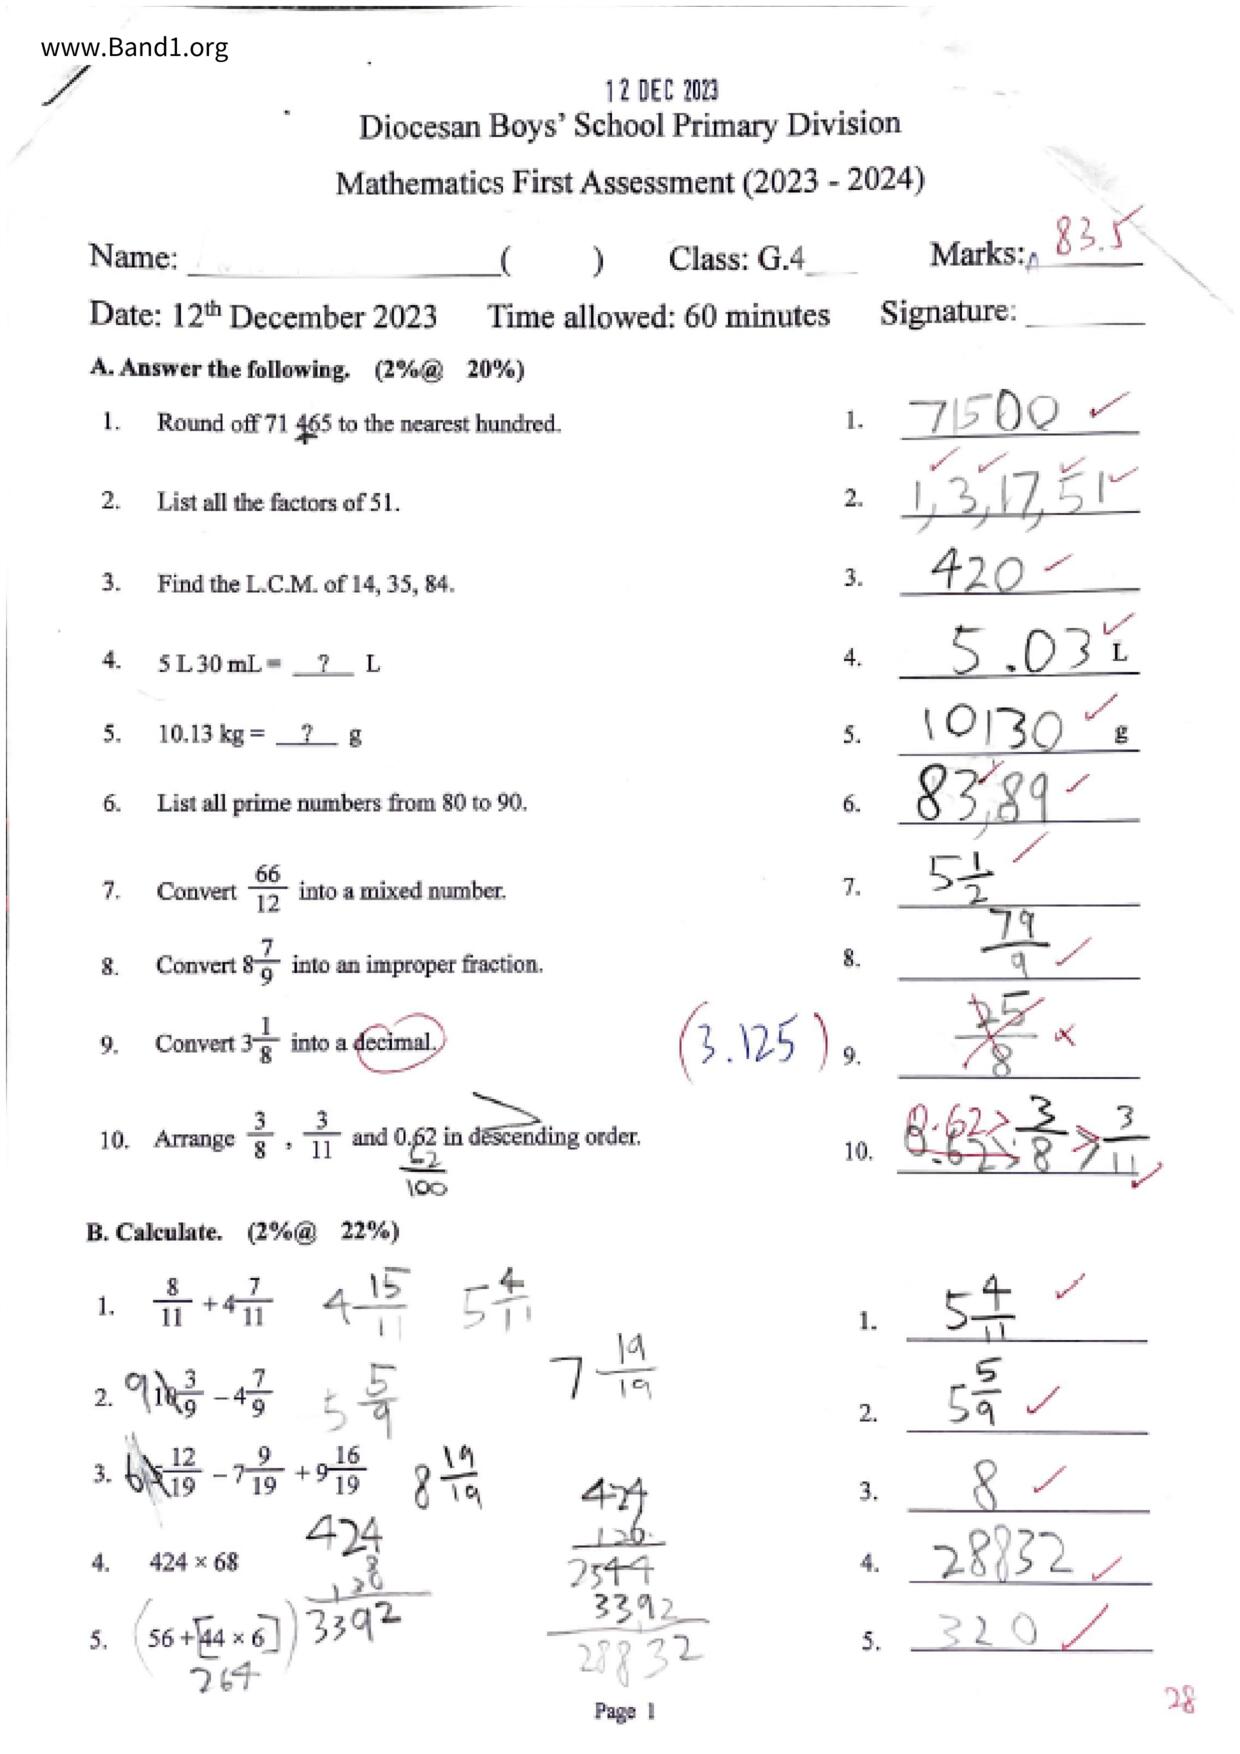 www.Band1.org
12 DEC 2023
Diocesan Boys' School Primary Division
Mathematics First Assessment (2023 - 2024)
Name: ____ ( ) Class: G.4 Marks: 83.5
Date: 12th December 2023 Time allowed: 60 minutes Signature:
A. Answer the following. (2%@ 20%)
1. Round off 71 465 to the nearest hundred. 1. 71500 ✓
2. List all the factors of 51. 2. 1, 3, 17, 51
3. Find the L.C.M. of 14, 35, 84. 3. 420
4. 5 L 30 mL = ? L 4. 5.03 L
5. 10.13 kg = ? g 5. 10130 g
6. List all prime numbers from 80 to 90. 6. 83, 89
7. Convert 66/12 into a mixed number. 7. 5 1/2
8. Convert 8 7/9 into an improper fraction. 8. 79/9
9. Convert 3 1/8 into a decimal. (3.125) 9. 25/8 ×
10. Arrange 3/8 , 3/11 and 0.62 in descending order. 10. 0.62 > 3/8 > 3/11
62/100
B. Calculate. (2%@ 22%)
1. 8/11 + 4 7/11 4 15/11 5 4/11 1. 5 4/11
7 19/19
2. 9 10 3/9 − 4 7/9 5 5/9 2. 5 5/9
3. 12/19 − 7 9/19 + 9 16/19 8 19/19 3. 8
424 424
4. 424 × 68 4. 28832
2544
3392 3392
5. (56 + [44 × 6]) 5. 320
264 28832
Page 1
28